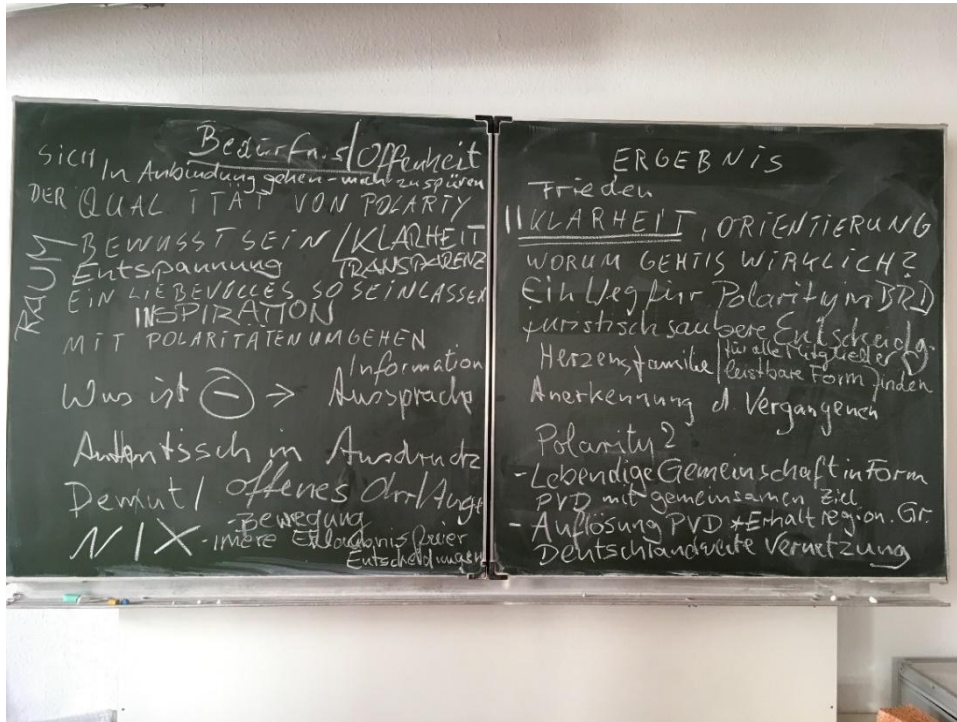 Bedürfnis/Offenheit
SICH In Anbindung gehen - mich zu spüren
DER QUALITÄT VON POLARITY
RAUM
BEWUSSTSEIN / KLARHEIT
Entspannung TRANSPARENZ
EIN LIEBEVOLLES SO SEINLASSEN
INSPIRATION
MIT POLARITÄTEN UMGEHEN
Information
Was ist ⊖ → Aussprache
Autentissch in Ausdruck
Demut / offenes Ohr/Auge
- Bewegung
NIX - innere Erlaubnis freier
Entscheidungen
ERGEBNIS
Frieden
II KLARHEIT, ORIENTIERUNG
WORUM GEHT'S WIRKLICH?
Ein Weg für Polarity in BRD
juristisch saubere Entscheidg.
Herzensfamilie für alle Mitglieder
leistbare Form finden
Anerkennung d. Vergangenen
Polarity?
- Lebendige Gemeinschaft in Form
PVD mit gemeinsamen Ziel
- Auflösung PVD + Erhalt region. Gr.
Deutschlandweite Vernetzung